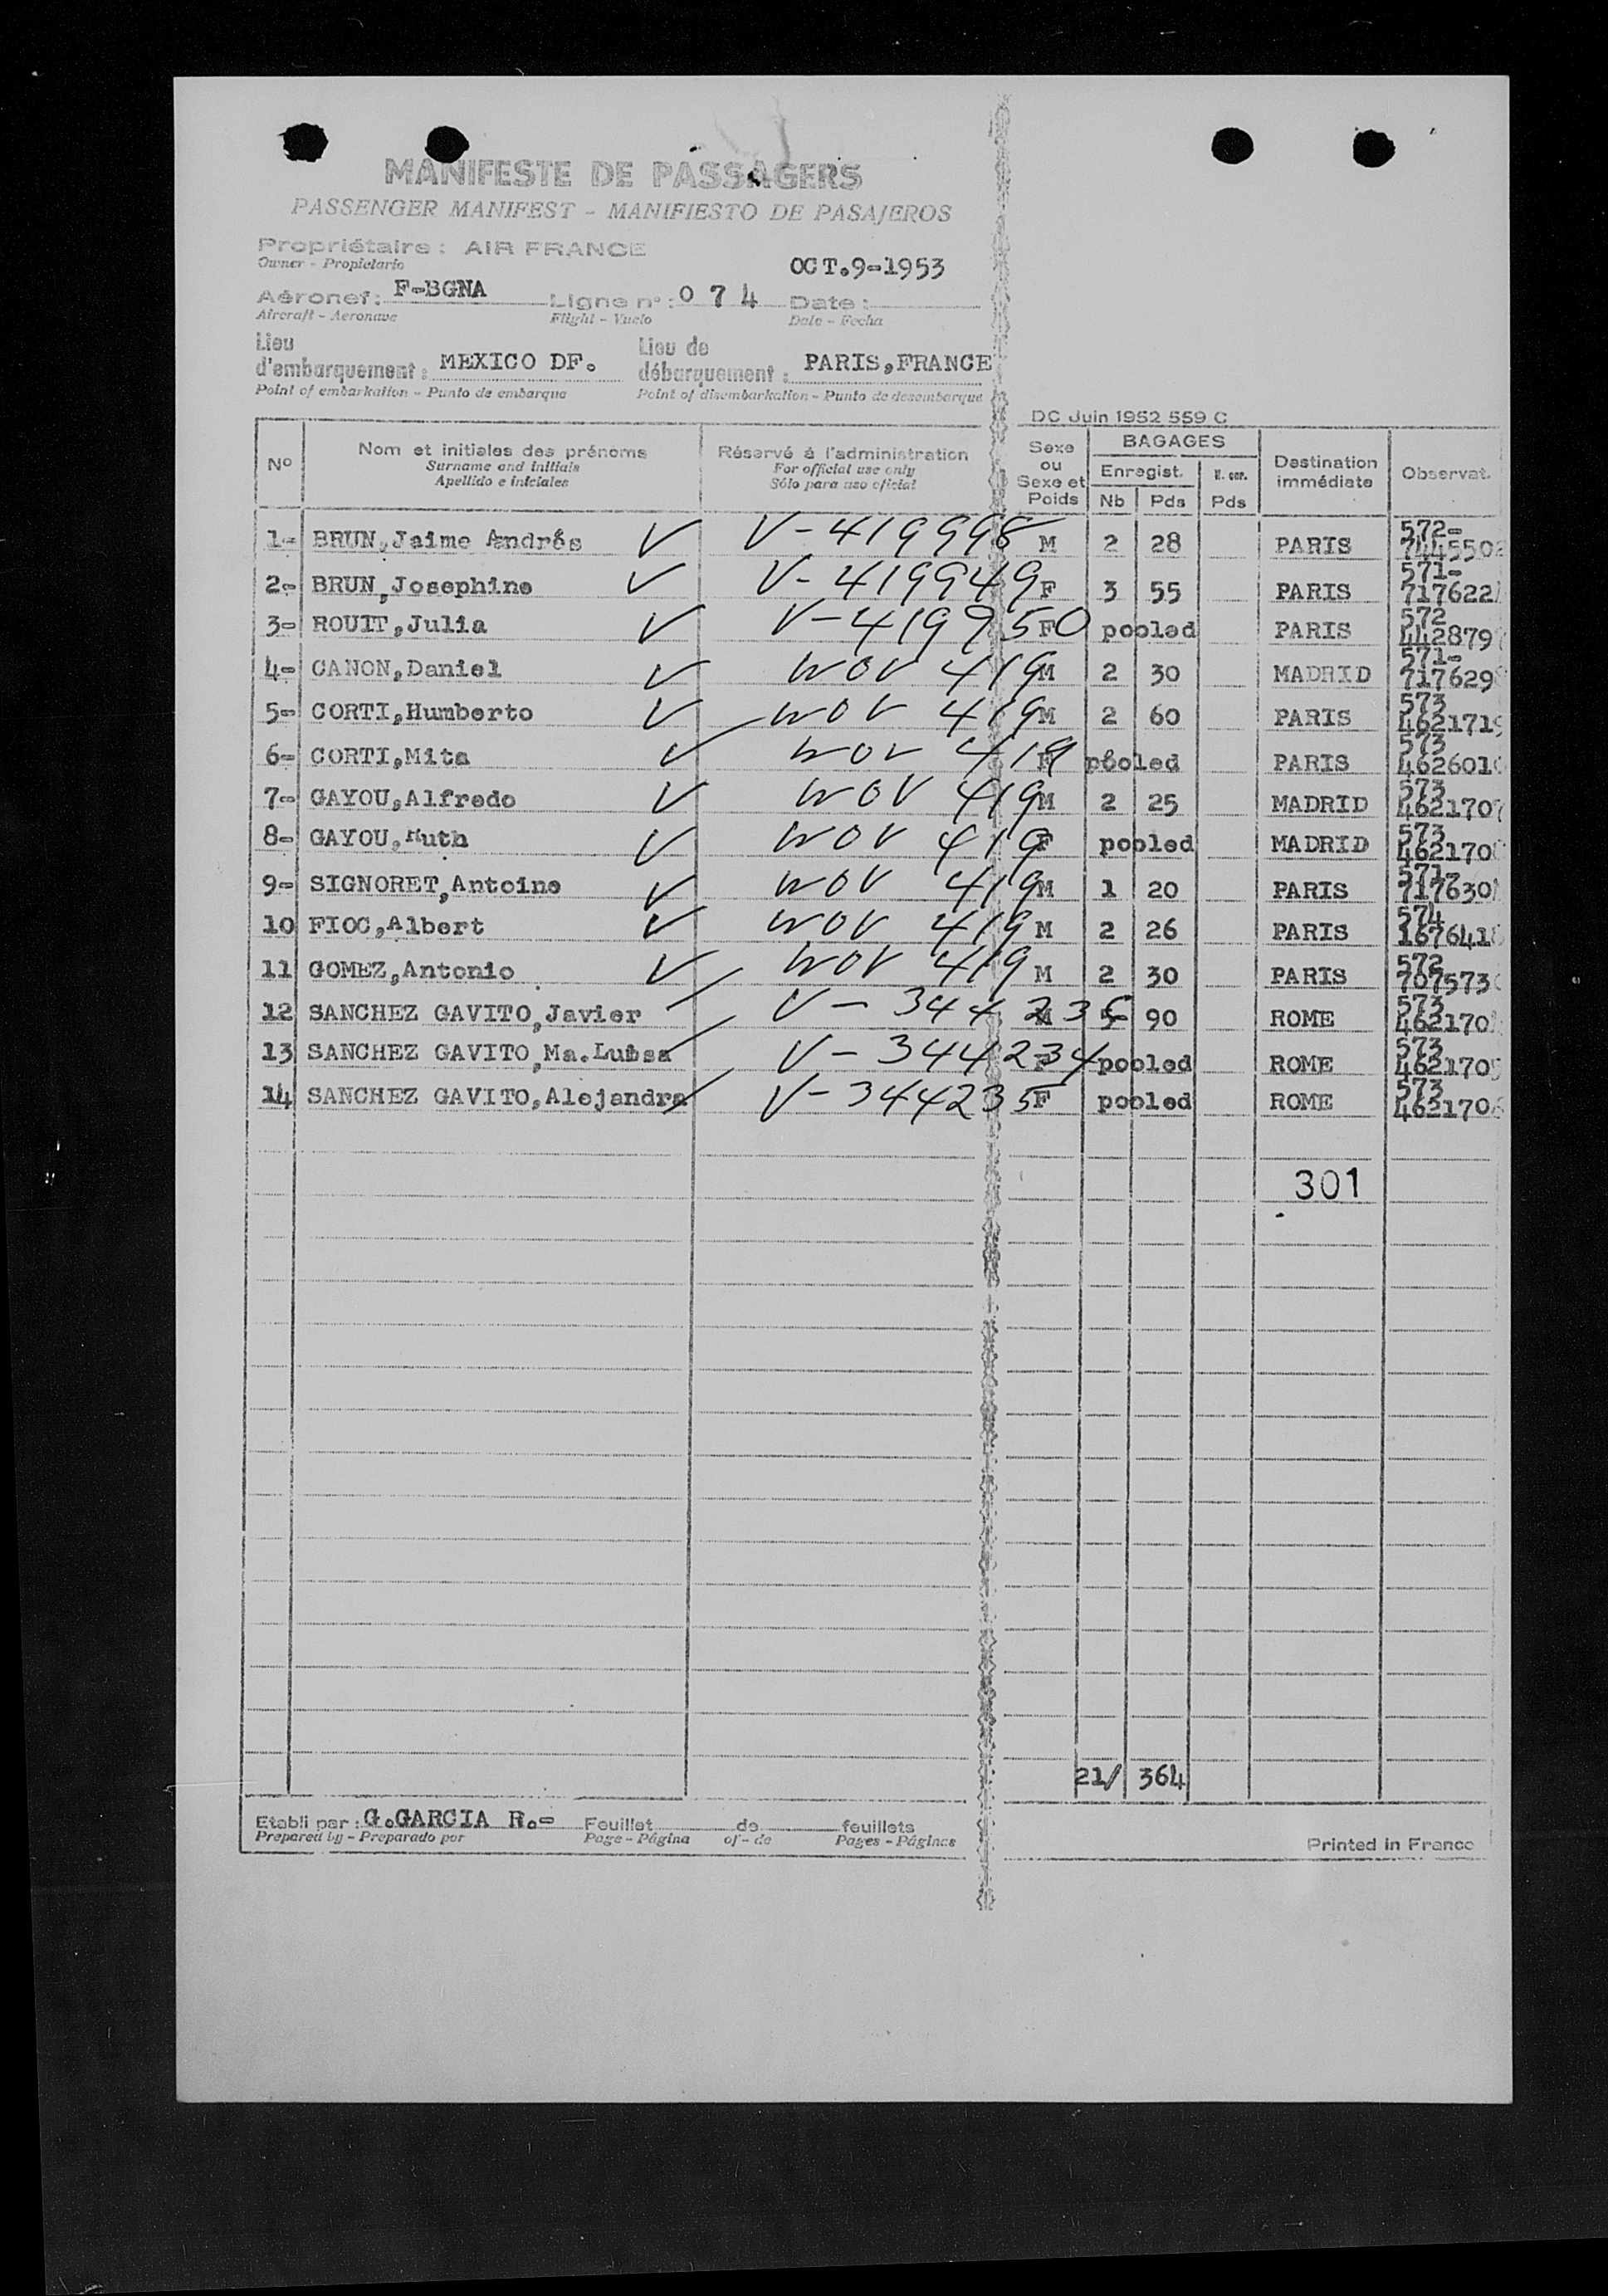 MANIFESTE DE PASSAGERS
PASSENGER MANIFEST - MANIFIESTO DE PASAJEROS
Propriétaire : AIR FRANCE
Owner - Propietario
OCT.9-1953
Aéronef : F-BGNA Ligne n° : 0 7 4 Date :
Aircraft - Aeronave Flight - Vuelo Date - Fecha
Lieu d'embarquement : MEXICO DF. Lieu de débarquement : PARIS,FRANCE
Point of embarkation - Punto de embarque Point of disembarkation - Punto de desembarque
DC Juin 1952 559 C
N° Nom et initiales des prénoms Réservé à l'administration Sexe ou Sexe et Poids BAGAGES Destination immédiate Observat.
Surname and initials For official use only Enregist.
Apellido e iniciales Sólo para uso oficial Nb Pds Pds
1- BRUN,Jaime Andrés V V-419998 M 2 28 PARIS 572- 7445502
2- BRUN,Josephine V V-419949 F 3 55 PARIS 571- 717622
3- ROUIT,Julia V V-419950 F pooled PARIS 572 442879
4- CANON,Daniel V WOV 419 M 2 30 MADRID 571- 717629
5- CORTI,Humberto V WOV 419 M 2 60 PARIS 573 462171
6- CORTI,Mita V WOV 419 pooled PARIS 573 462601
7- GAYOU,Alfredo V WOV 419 M 2 25 MADRID 573 462170
8- GAYOU,Ruth V WOV 419 F pooled MADRID 573 462170
9- SIGNORET,Antoine V WOV 419 M 1 20 PARIS 571- 717630
10 FIOC,Albert V WOV 419 M 2 26 PARIS 574 167641
11 GOMEZ,Antonio V WOV 419 M 2 30 PARIS 572 707573
12 SANCHEZ GAVITO,Javier V-344236 M 5 90 ROME 573 462170
13 SANCHEZ GAVITO,Ma.Luisa V-344234 F pooled ROME 573 462170
14 SANCHEZ GAVITO,Alejandra V-344235 F pooled ROME 573 462170
301
21/ 364
Etabli par : G.GARCIA R.- Feuillet de feuillets
Prepared by - Preparado por Page - Página of - de Pages - Páginas
Printed in France